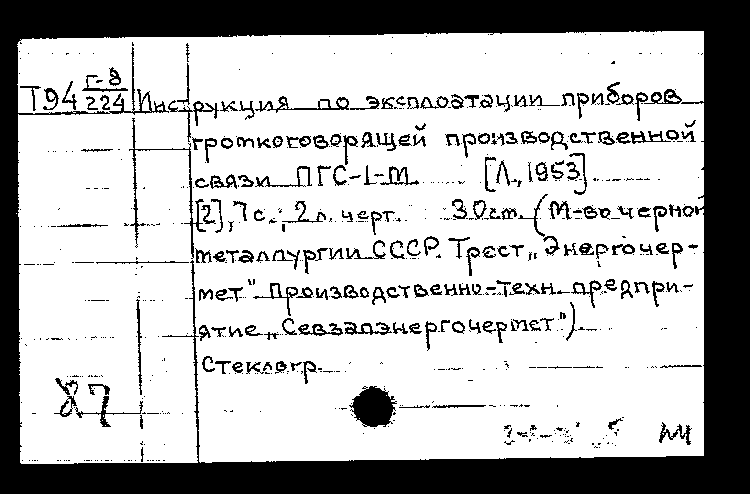 Т94 Г-8/224 Инструкция по эксплоатации приборов
громкоговорящей производственной
связи ПГС-1-М. [Л., 1953].
[2], 7 с.; 2 л. черт. 30 см. (М-во черной
металлургии СССР. Трест „Энергочер-
мет". Производственно-техн. предпри-
ятие „Севзапэнергочермет").
Стеклогр.
87